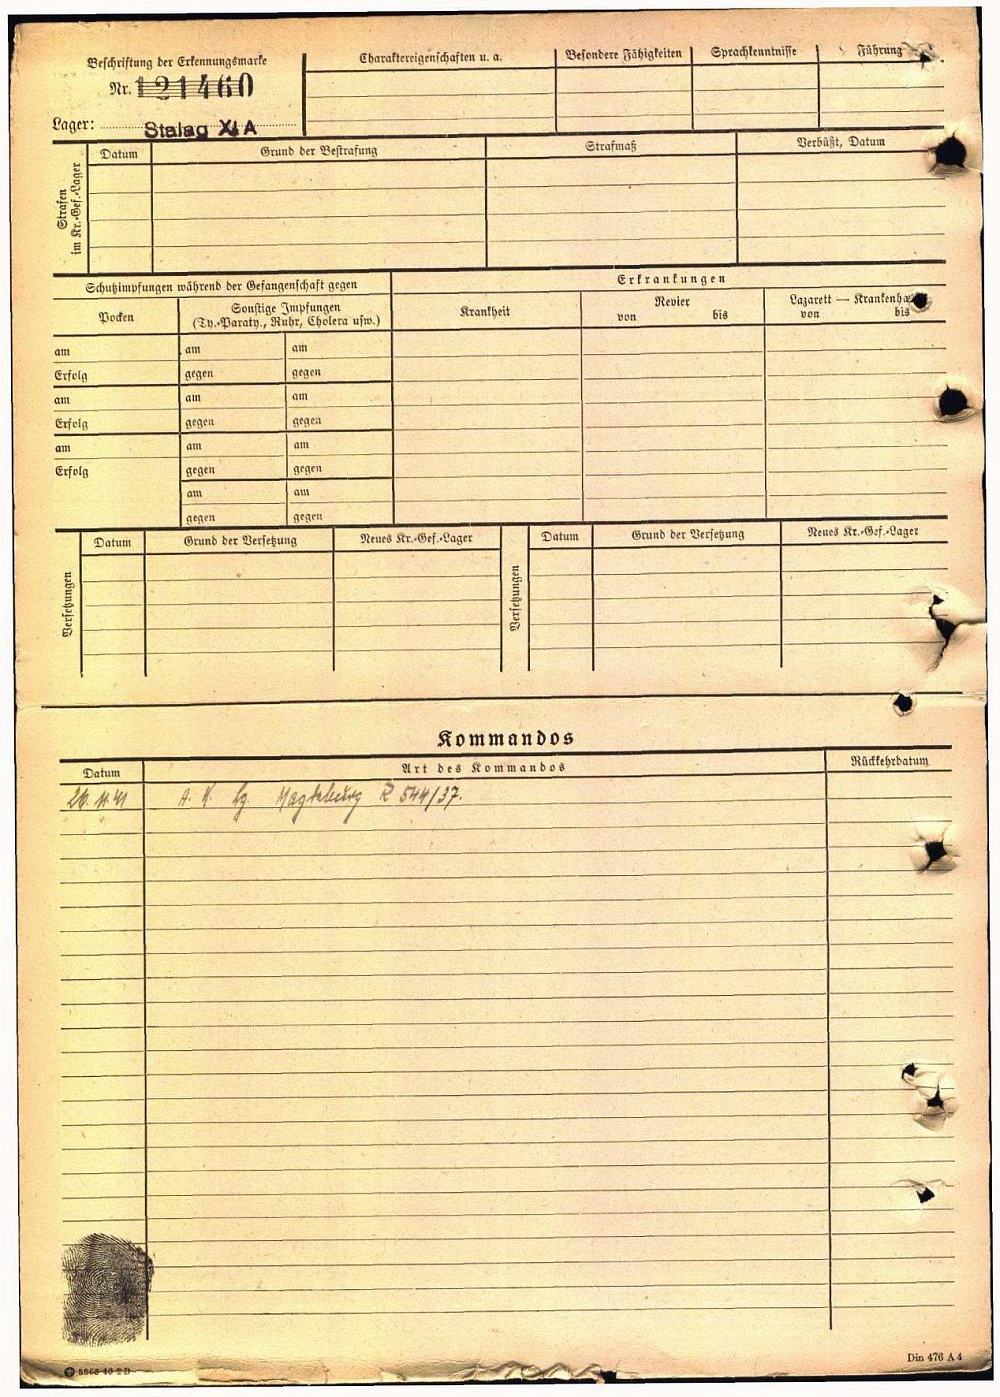 Beschriftung der Erkennungsmarke
Nr. 121460
Lager: Stalag XI A
Charaktereigenschaften u. a.
Besondere Fähigkeiten
Sprachkenntnisse
Führung
Strafen
im Kr.-Gef.-Lager
Datum
Grund der Bestrafung
Strafmaß
Verbüßt, Datum
Schutzimpfungen während der Gefangenschaft gegen
Erkrankungen
Pocken
Sonstige Impfungen
(Ty.-Paraty., Ruhr, Cholera usw.)
Krankheit
Revier
von bis
Lazarett — Krankenha
von bis
am am am
Erfolg gegen gegen
am am am
Erfolg gegen gegen
am am am
Erfolg gegen gegen
am am
gegen gegen
Versetzungen
Datum
Grund der Versetzung
Neues Kr.-Gef.-Lager
Versetzungen
Datum
Grund der Versetzung
Neues Kr.-Gef.-Lager
Kommandos
Datum
Art des Kommandos
Rückkehrdatum
26. 11. 41 A. K. Lg Magdeburg R 544/37.
5566 40 2 D
Din 476 A 4